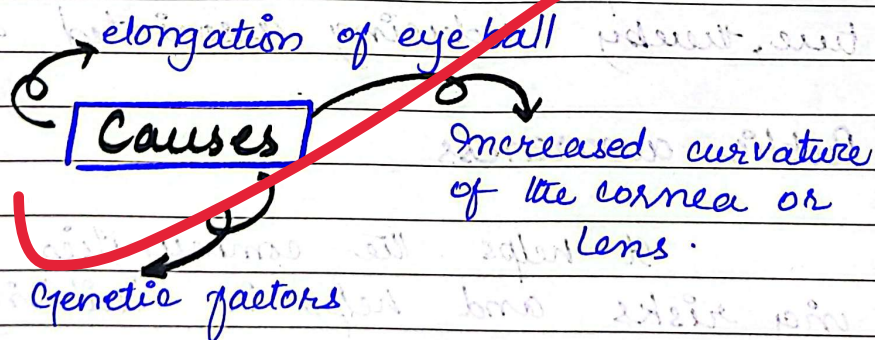 elongation of eye ball
Causes
Increased curvature
of the cornea or
Lens.
Genetic factors